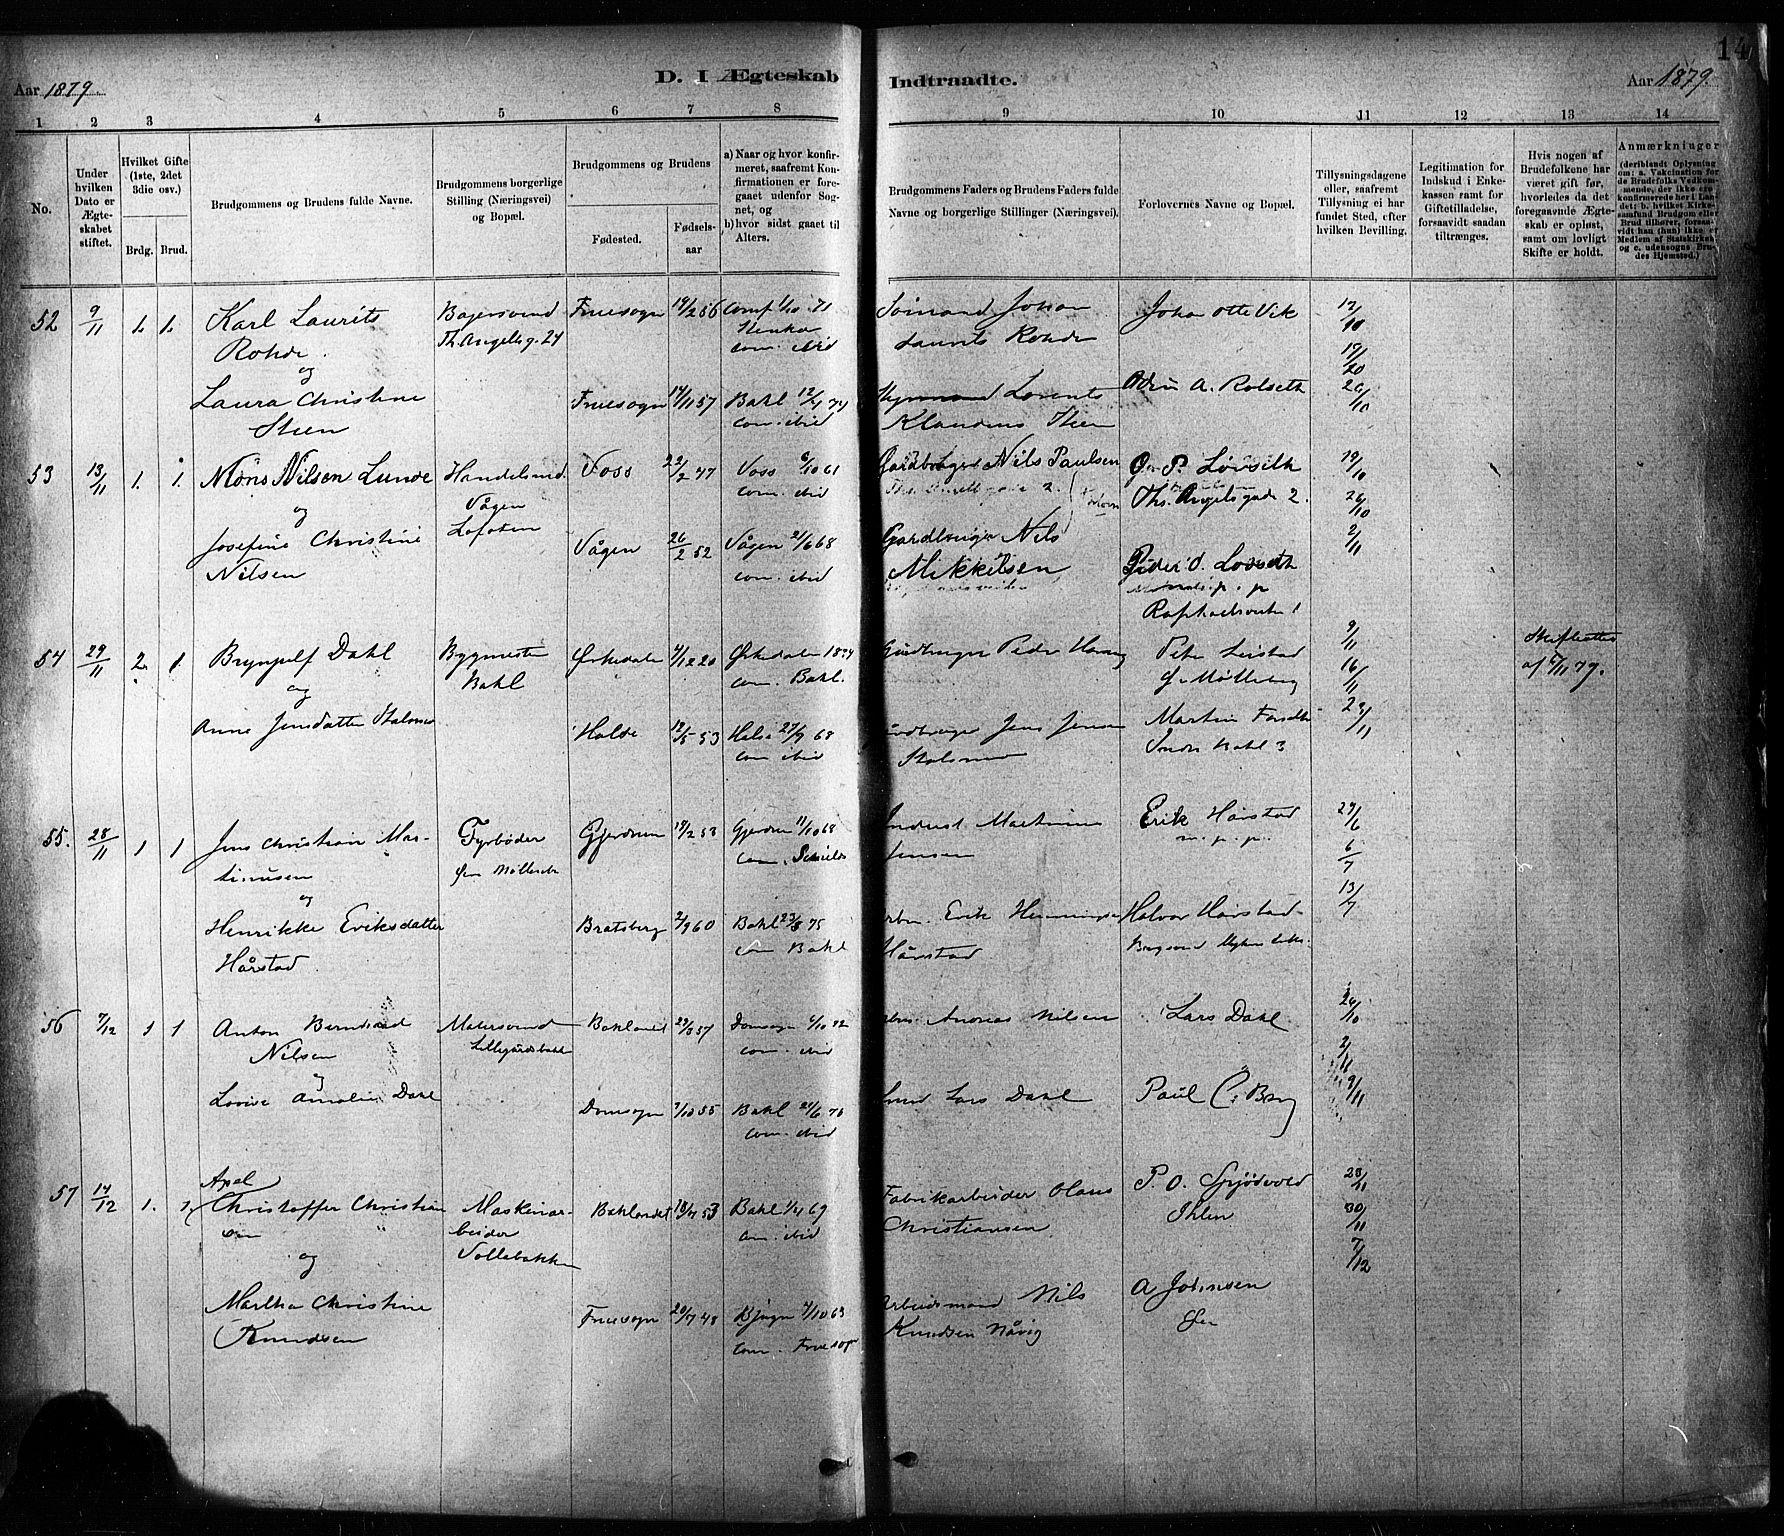 14
Aar 1879
D. I Ægteskab
Indtraadte.
Aar 1879
1 2 3 4 5 6 7 8 9 10 11 12 13 14
No.
Under hvilken Dato er Ægteskabet stiftet.
Hvilket Gifte (1ste, 2det 3die osv.)
Brdg. Brud.
Brudgommens og Brudens fulde Navne.
Brudgommens borgerlige Stilling (Næringsvei) og Bopæl.
Brudgommens og Brudens
Fødested.
Fødselsaar
a) Naar og hvor konfirmeret, saafremt Konfirmationen er foregaaet udenfor Sognet, og
b) hvor sidst gaaet til Alters.
Brudgommens Faders og Brudens Faders fulde Navne og borgerlige Stillinger (Næringsvei).
Forlovernes Navne og Bopæl.
Tillysningsdagene eller, saafremt Tillysning ei har fundet Sted, efter hvilken Bevilling.
Legitimation for Indskud i Enkekassen ramt for Giftetilladelse, forsaavidt saadan tiltrænges.
Hvis nogen af Brudefolkene har været gift før, hvorledes da det foregaaende Ægteskab er opløst, samt om lovligt Skifte er holdt.
Anmærkninger (deriblandt Oplysning om: a. Vakcination for de Brudefolks Vedkommende, der ikke ere konfirmerede her i Landet; b. hvilket Kirkesamfund Brudgom eller Brud tilhører, forsaavidt han (hun) ikke er Medlem af Statskirken og c. udensogns Brudes Hjemsted.)
52 9/11 1. 1.
Karl Laurits
Rohde.
og
Laura Christine
Steen
Bajersvend
Th. Angelsg. 24
Fruesogn 19/2 56
Conf 1/10 71
com. ibid
Fruesogn 14/11 57
Bakl 12/4 74
com. ibid
Sømand Johan
Laurits Rohde
Lorents
Klaudius Steen
Johan Otte Vik
A. Rolseth
12/10
19/20
26/10
53 13/11 1. 1.
Mons Nilsen Lunde
og
Josefine Christine
Nilsen
Handelsmd.
Vågen
Lofoten
Voss 22/2 47
Voss 6/10 61
com. ibid
Vågen 26/2 52
Vågen 21/6 68
com. ibid
Gardbruger Nils Paulsen
Gardbruger Nils
Mikkelsen
O. P. Løvseth
Ths. Angelsgade 2.
Peder O. Lovseth
19/10
26/10
2/11
54 29/11 2. 1.
Brynjulf Dahl
og
Anne Jensdatter
Bygmester
Bakl
Ørkedalen 4/12 20
Ørkedalen 1834
com. Bakl.
Halse 12/5 53
Halse 27/9 68
com ibid
Gardbruger Peder
Gardbruger Jens Jensen
Peter Leistad
Ø. Møllebg
Martin
Bakl 3
9/11
16/11
23/11
Skifteattest
af 6/11 79.
55. 28/11 1 1
Jens Christian Mar-
tinusen
og
Henrikke Eriksdatter
Hårstad.
Fyrbøder
Gjerdrum 18/2 53
Gjerdrum 11/10 68
com.
Bratsberg 2/9 60
Bakl 23/8 75
com Bakl
Martinus
Jensen
Arbm. Erik Henningsen
Hårstad
Erik Hårstad
m. p. p.
Halvor Hårstad
29/6
6/7
13/7
56 7/12 1 1
Anton Bernhard
Nilsen
og
Lovise Amalie Dahl
Malersvend
Lillegårdsbakk
Baklandet 29/3 57
Domsogn 6/10 72
com. ibid
Domsogn 7/10 55
Bakl 24/6 70
com. ibid
Arbm. Andreas Nilsen
Smed Lars Dahl
Lars Dahl
Paul C. Berg
26/10
2/11
9/11
57 14/12 1. 1.
Axel
Christoffer Christian
sen
og
Martha Christine
Knudsen
Maskinar-
beider
Vollebakken
Baklandet 18/4 53
Bakl 1/4 69
com. ibid
Fruesogn 20/7 48
Bjugn 4/10 63
com. Fruesogn
Fabrikarbeider Olaus
Christiansen
Arbeidsmand Nils
Knudsen Nåvig
P. O. Spjødvold
Ihlen
A Johnsen
23/11
30/11
7/12